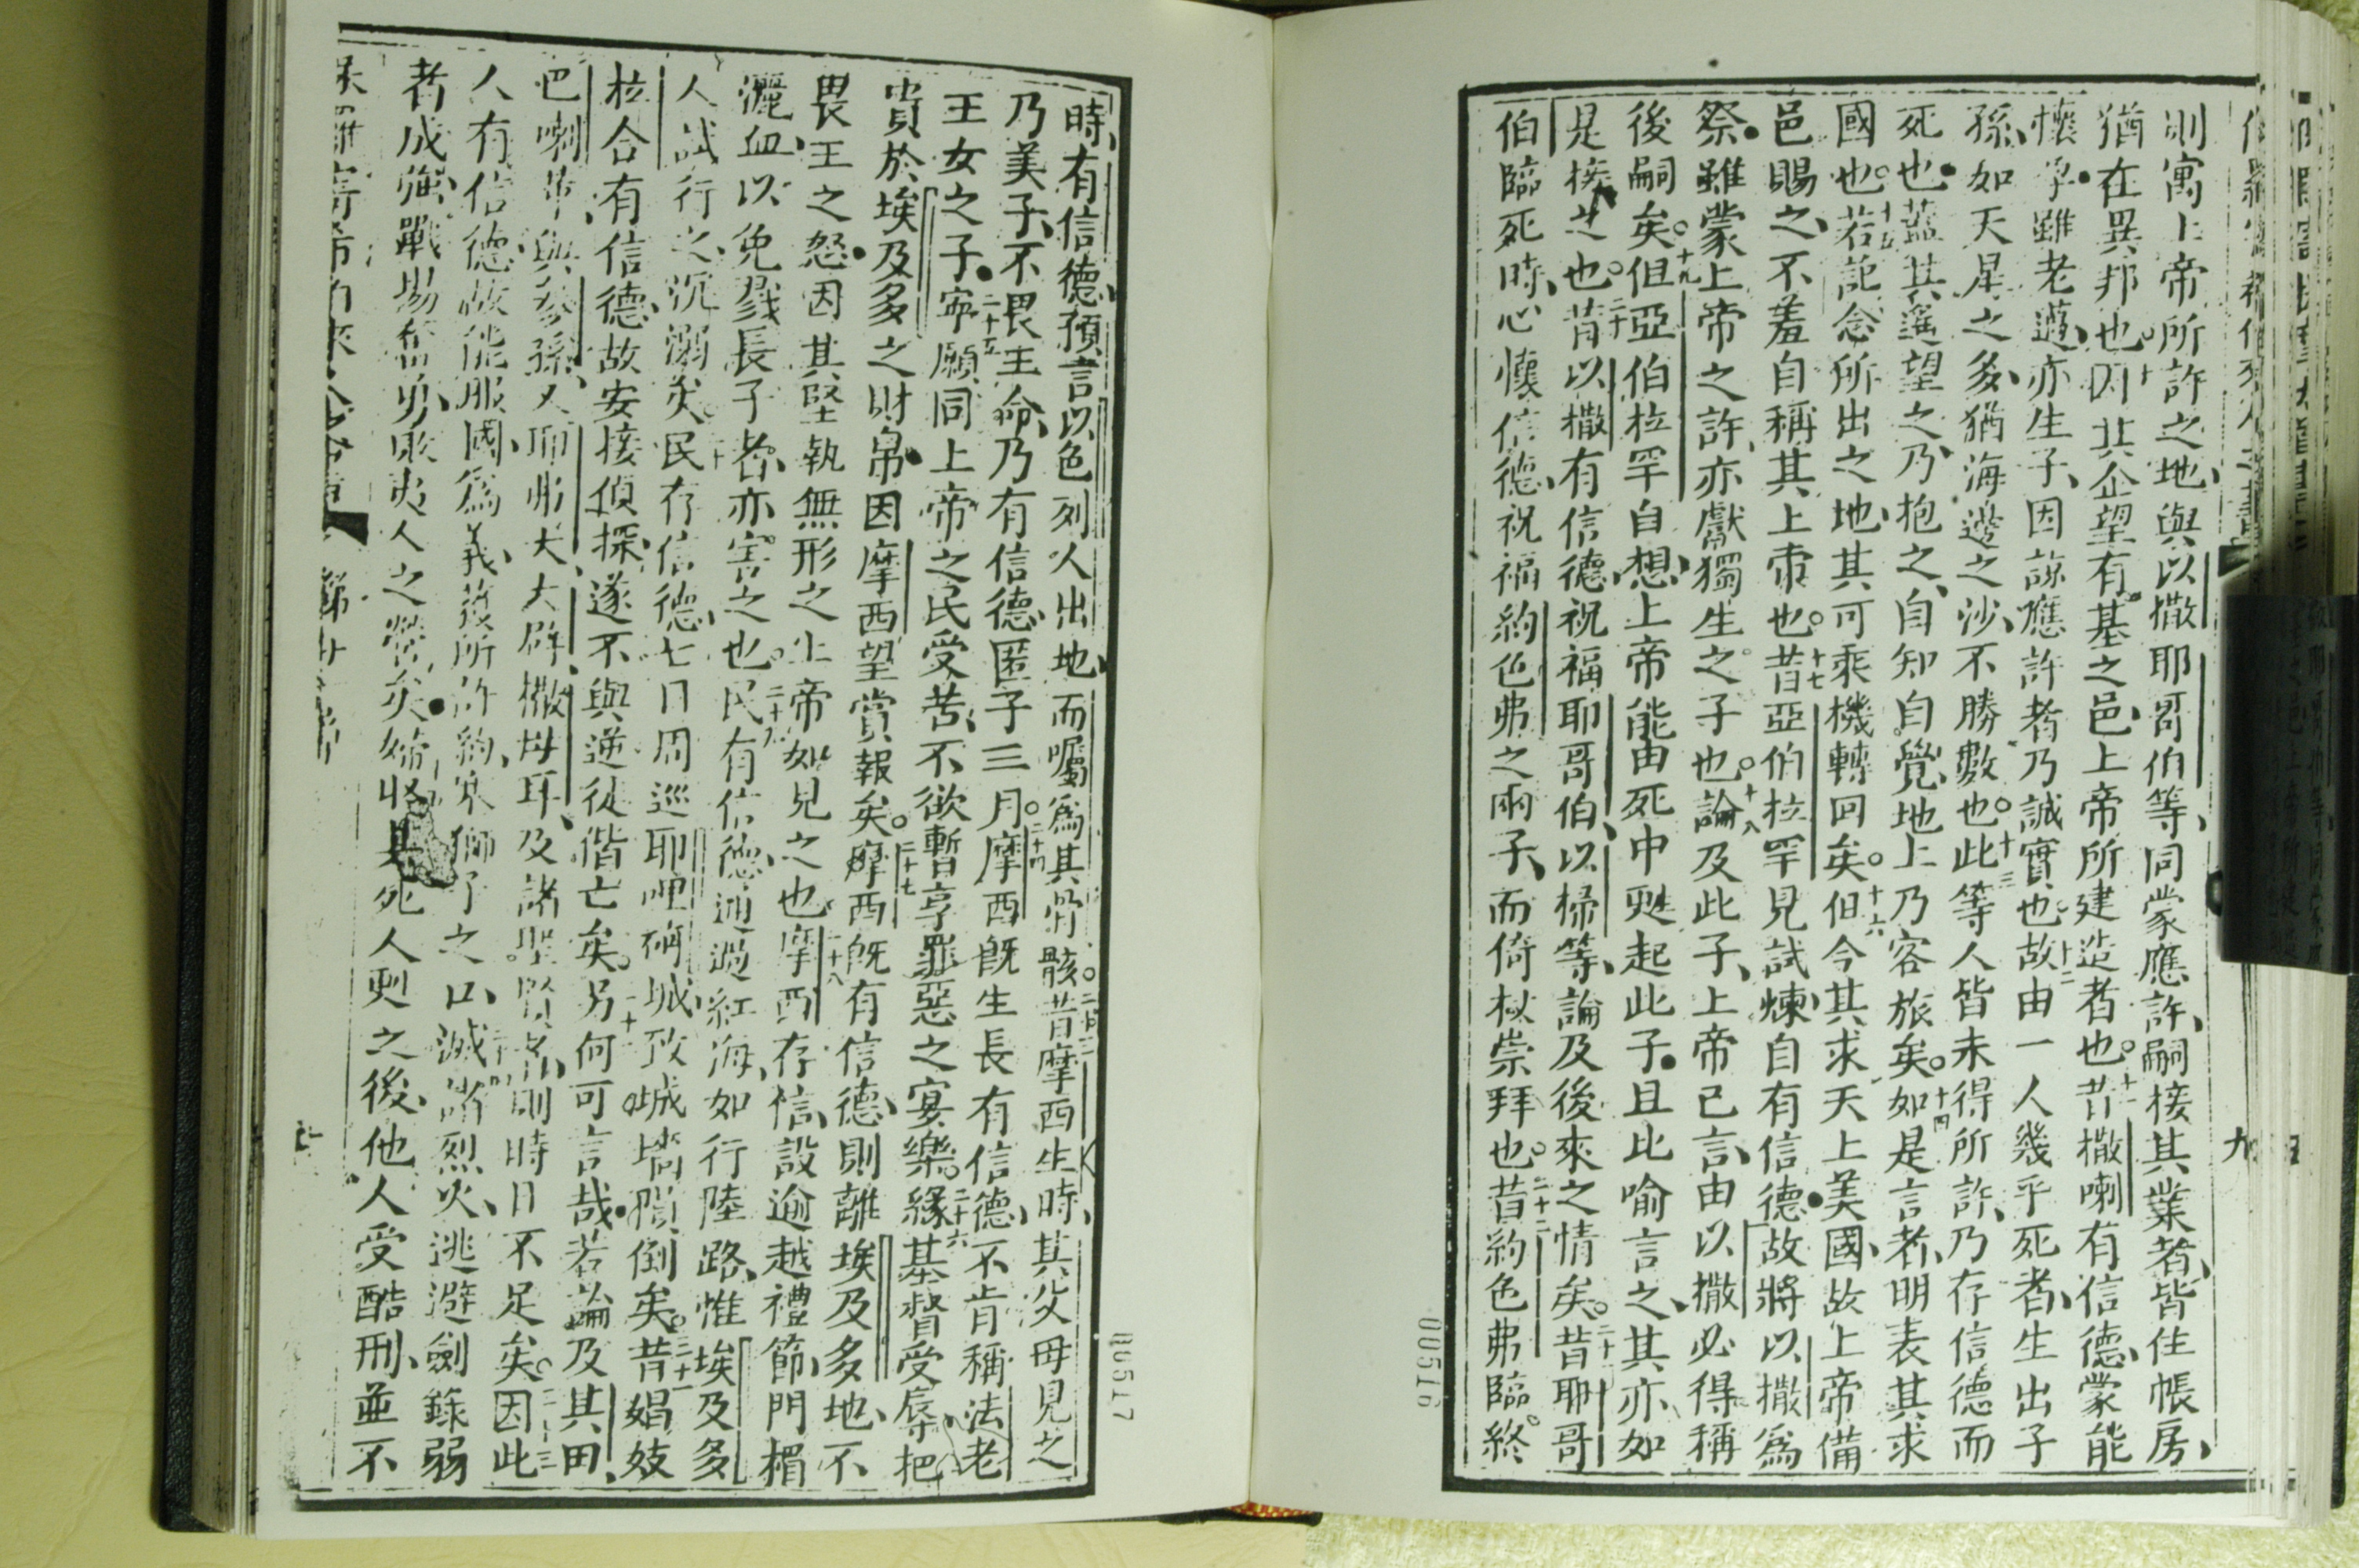 則寓上帝所許之地、與以撒耶哥伯等、同蒙應許、嗣接其業者、皆住帳房、
猶在異邦也。十因其企望有基之邑、上帝所建造者也。十一昔撒喇有信德、蒙能
懷孕、雖老邁、亦生子、因諒應許者乃誠實也、十二故由一人幾乎死者、生出子
孫、如天星之多、猶海邊之沙、不勝數也。十三此等人皆未得所許、乃存信德而
死也、蓋其遙望之、乃抱之、自知自覺、地上乃容旅矣。十四如是言者、明表其求
國也。十五若記念所出之地、其可乘機轉回矣。十六但今其求天上美國、故上帝備
邑賜之、不羞自稱其上帝也。十七昔亞伯拉罕見試煉、自有信德、故將以撒為
祭、雖蒙上帝之許、亦獻獨生之子也。十八論及此子、上帝已言、由以撒必得稱
後嗣矣。十九但亞伯拉罕自想、上帝能由死中甦起此子、且比喻言之、其亦如
是接之也。二十昔以撒有信德、祝福耶哥伯、以掃等、論及後來之情矣。二十一昔耶哥
伯臨死時、心懷信德、祝福約色弗之兩子、而倚杖崇拜也。二十二昔約色弗臨終
九
00516
時、有信德、預言以色列人出地、而囑為其骨骸。二十三昔摩西生時、其父母見之
乃美子、不畏王命、乃有信德、匿子三月。二十四摩西既生長、有信德、不肯稱法老
王女之子、二十五寧願同上帝之民受苦、不欲暫享罪惡之宴樂。二十六緣基督受辱、把
貴於埃及多之財帛、因摩西望賞報矣。二十七摩西既有信德、則離埃及多地、不
畏王之怒、因其堅執無形之上帝、如見之也、二十八摩西存信、設逾越禮節、門楣
灑血、以免戮長子者、亦害之也。二十九民有信德、通過紅海、如行陸路、惟埃及多
人試行之、沉溺矣。三十民存信德、七日周巡耶哩城、致城墻隕倒矣。三十一昔娼妓
拉合有信德、故安接偵探、遂不與逆徒偕亡矣。另何可言哉、若論及其田、
巴喇革與參孫、又耶大、大辟、撒母耳、及諸聖賢、則時日不足矣。三十三因此
人有信德、故能服國、為義、獲所許約、塞獅子之口、滅諸烈火、逃避劍鋒、弱
者成強、戰場奮勇、敗夷人之營矣、婦收其死人甦之後、他人受酷刑、並不
00517